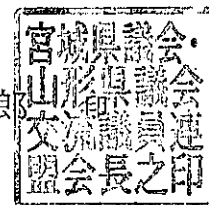 郎
印
宮城県議会・
山形県議会
交流議員連
盟会長之印